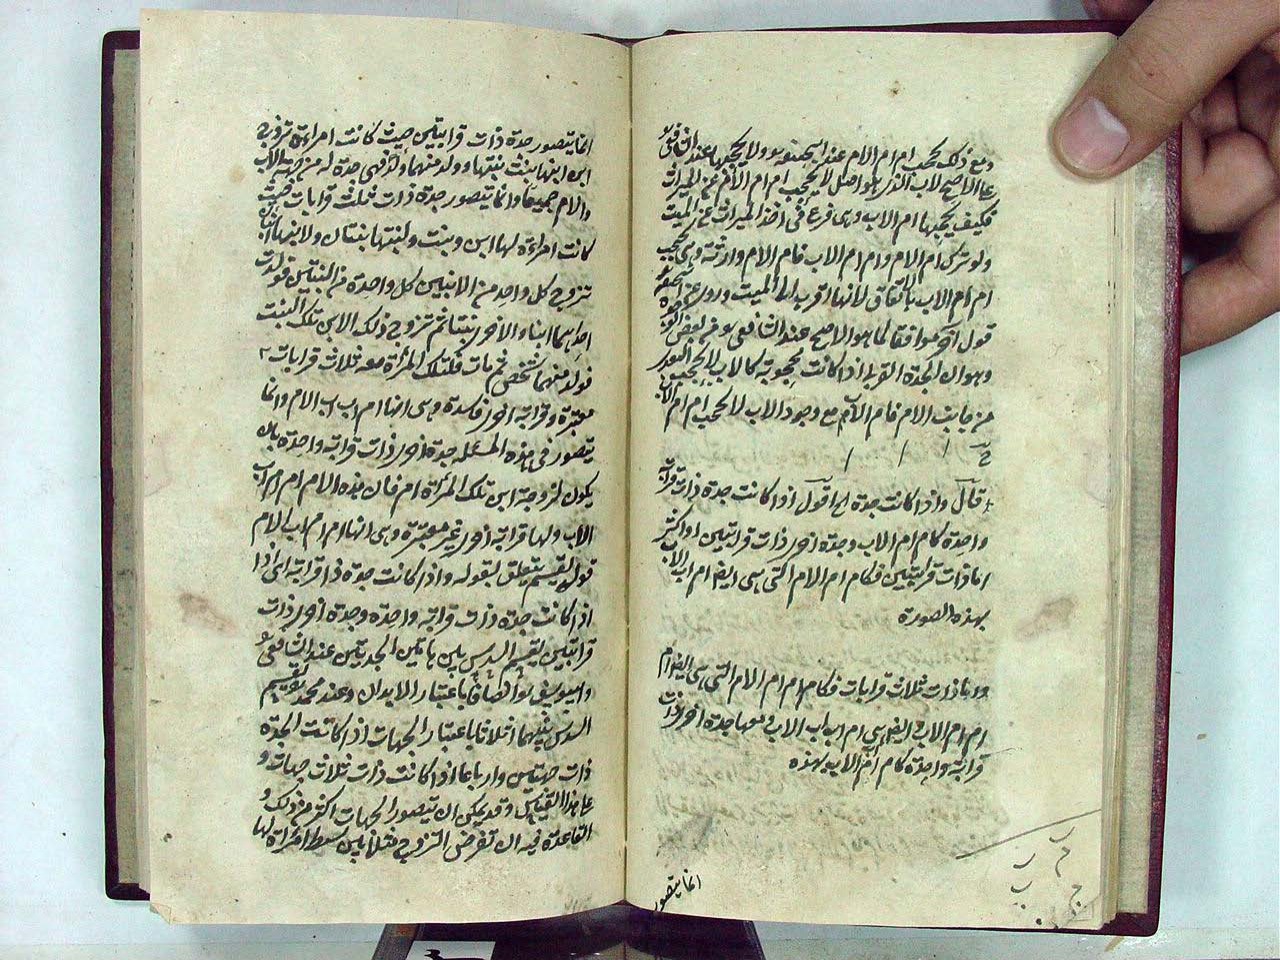 ومع ذلك تحجب ام ام الام عند ابيحنيفة ولا تحجبها عند الشافعي
على الاصح لاب الذي هو اصل لا يحجب ام ام الام عن الميراث
فكيف يحجبها ام الاب وهى فرع فى اخذ الميراث عن الميت
ولو ترك ام الام وام ام الاب فام الام وارثة وهى تحجب
ام ام الاب بالاتفاق لانها اقرب الى الميت وروى عن الشافعي
قول اخر موافقا لما هو الاصح عند الشافعي وفى بعض
وهو ان الجدة القربى اذا كانت محجوبة كالاب لا تحجب البعدى
من جانب الام فام الاب مع وجود الاب لا تحجب ام ام الام
قال واذا كانت جدة الخ اقول اذا كانت جدة ذات قرابة
واحدة كام ام الاب وجدة اخرى ذات قرابتين او اكثر
اما ذات قرابتين فكام ام الام التى هى ايضا ام اب الاب
بهذه الصورة
واما ذات ثلاث قرابات فكام ام ام الام التى هى ايضا ام
ام ام الاب وايضا هى ام اب اب الاب ومعها جدة اخرى ذات
قرابة واحدة كام ام الاب بهذه
انما يتصور
انما يتصور جدة ذات قرابتين حيث كانت امراءة تزوج
ابن ابنها بنت بنتها وولد منهما ولد فهى جدة له من جهة الاب
والام جميعا وانما يتصور جدة ذات ثلث قرابات حيث
كانت امراءة لها ابن وبنت ولبنتها بنتان ولابنها ابنان
تزوج كل واحد من الابنين كل واحدة من البنتين فولدت
احداهما ابنا والاخرى بنتا ثم تزوج ذلك الابن تلك البنت
فولد منهما شخص ثم مات فلتلك المرأة معه ثلاث قرابات
معتبرة وقرابة اخرى فاسدة وهى انها ام اب اب الام وانما
يتصور فى هذه المسئلة جدة اخرى ذات قرابة واحدة بان
يكون لزوجة ابن تلك المرأة ام فان هذه الام ام ام اب
الاب ولها قرابة اخرى غير معتبرة وهى انها ام ام اب الام
قوله يقسم يتعلق بقوله واذا كانت جدة ذا قرابة اى اذا
اذا كانت جدة ذات قرابة واحدة وجدة اخرى ذات
قرابتين يقسم السدس بين هاتين الجدتين عند الشافعي
وابيوسف انصافا باعتبار الابدان وعند محمد يقسم
السدس بينهما اثلاثا باعتبار الجهات اذا كانت الجدة
ذات جهتين وارباعا اذا كانت ذات ثلاث جهات و
على هذا القياس وقد يمكن ان يتصور الجهات اكثر من ذلك و
القاعدة فيه ان تفرض التزوج مثلا بين سبط امرأة لها